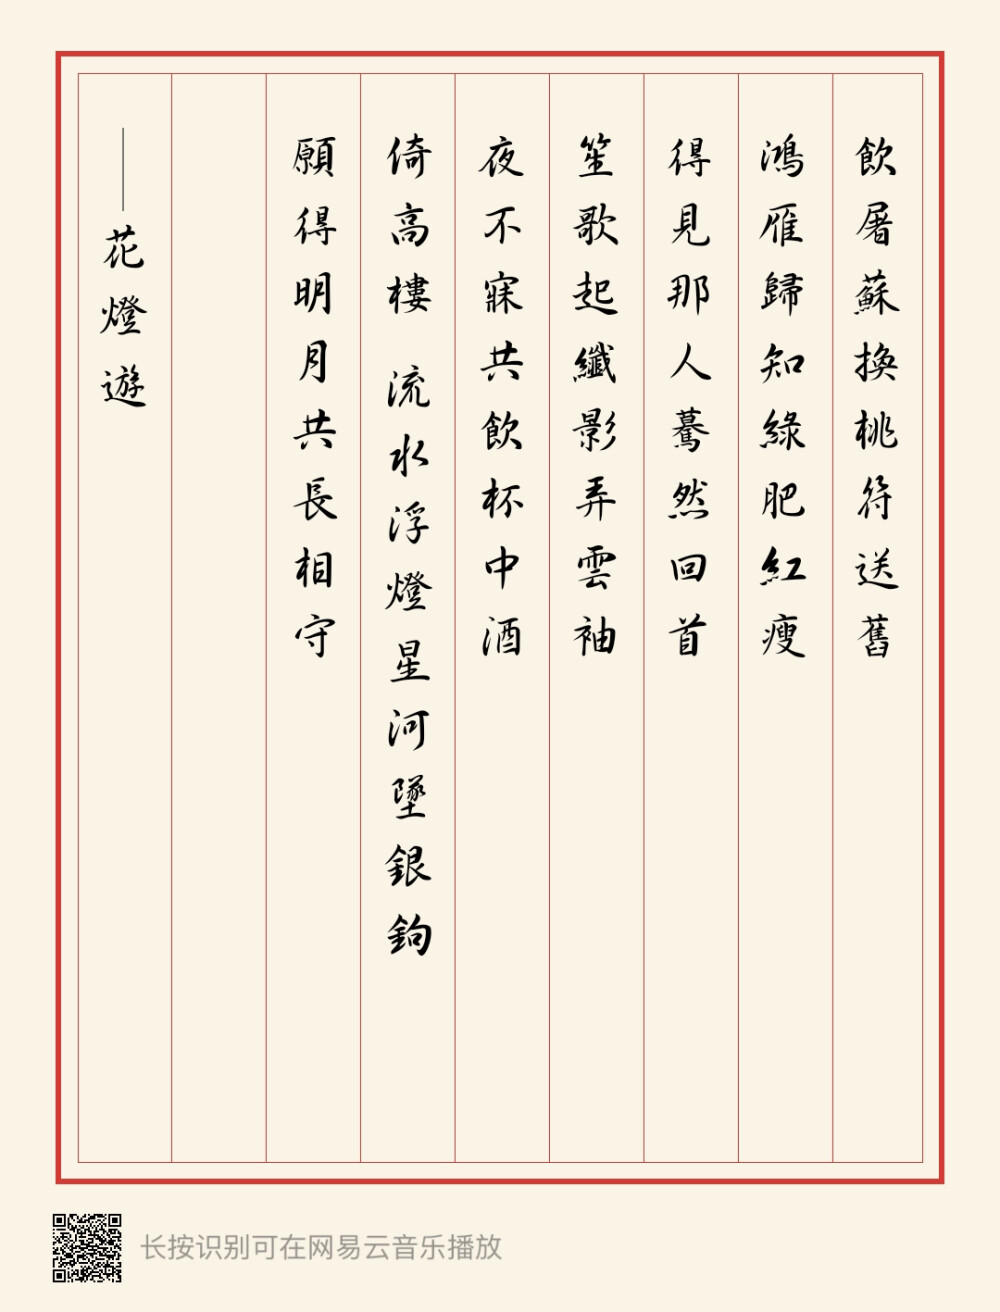 飲屠蘇換桃符送舊
鴻雁歸知綠肥紅瘦
得見那人驀然回首
笙歌起纖影弄雲袖
夜不寐共飲杯中酒
倚高樓 流水浮燈星河墜銀鉤
願得明月共長相守
——花燈遊
长按识别可在网易云音乐播放